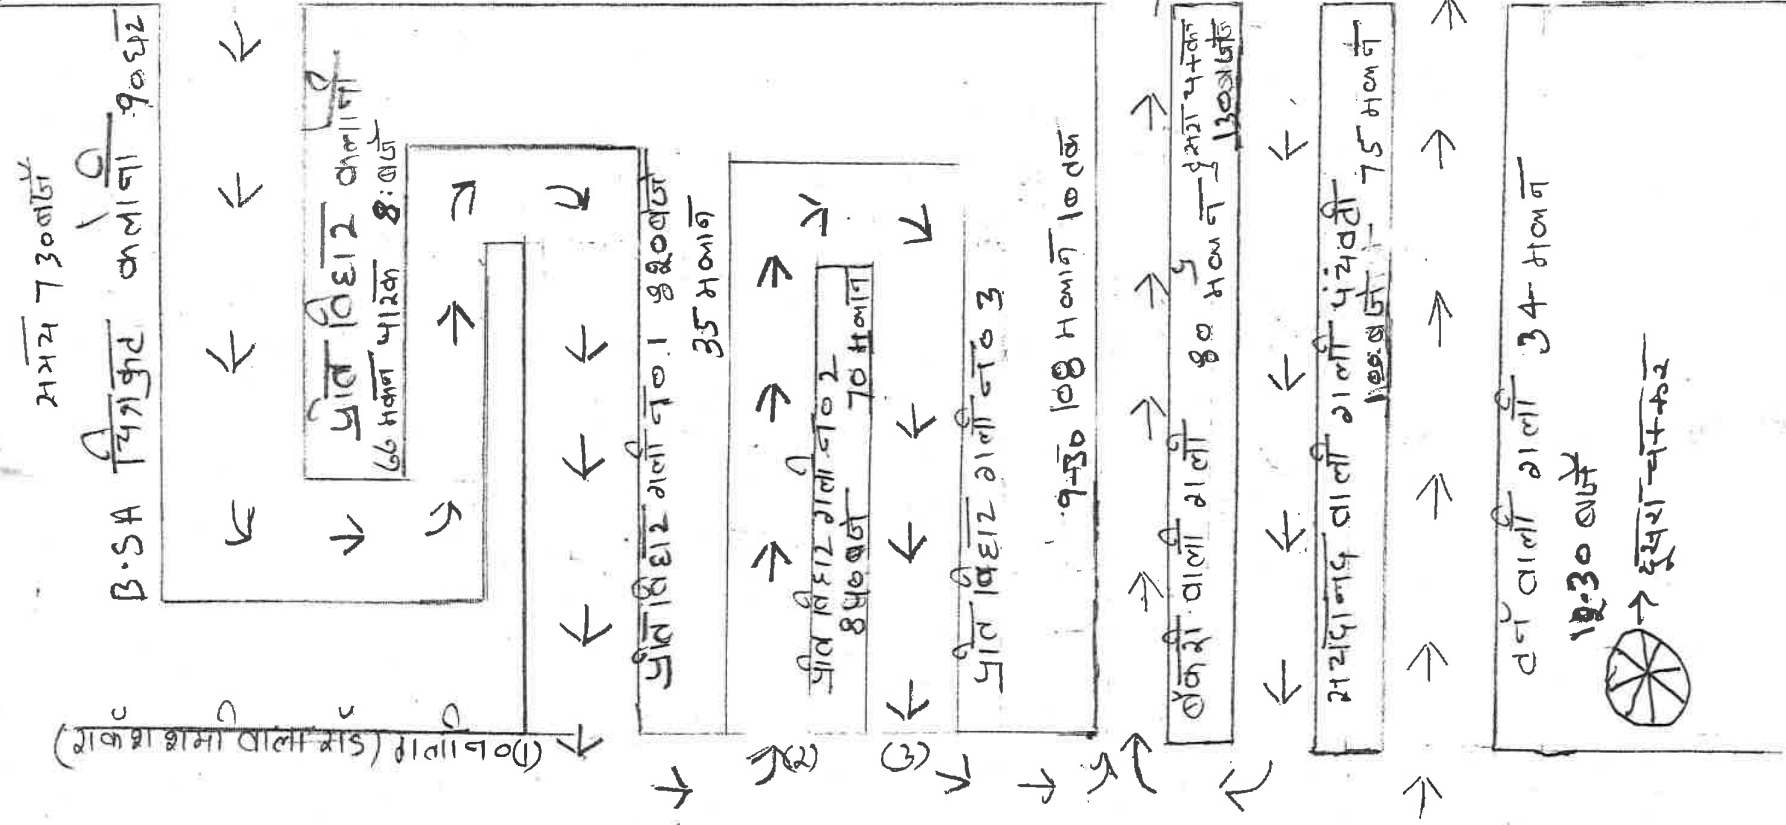 समय 7 30 बजे
B.SA चित्रकुट कलोनी 90 घर
प्रीत विहार कलानी
66 मकान पारक 8:बजे
प्रीत विहार गली न०.1 820 बजे
35 मकान
प्रीत विहार गली न० 2
840 बजे 70 मकान
प्रीत विहार गली न० 3
9-30 108 मकान 10 तक
वाली गली 80 मकान
1300 बजे
सचदानन्द वाली गली पंचवटी
1000 बजे - 75 मकान
वाली गली 34 मकान
12.30 बजे
(राकेश शर्मा वाली रोड) गली न० (1)
(2)
(3)